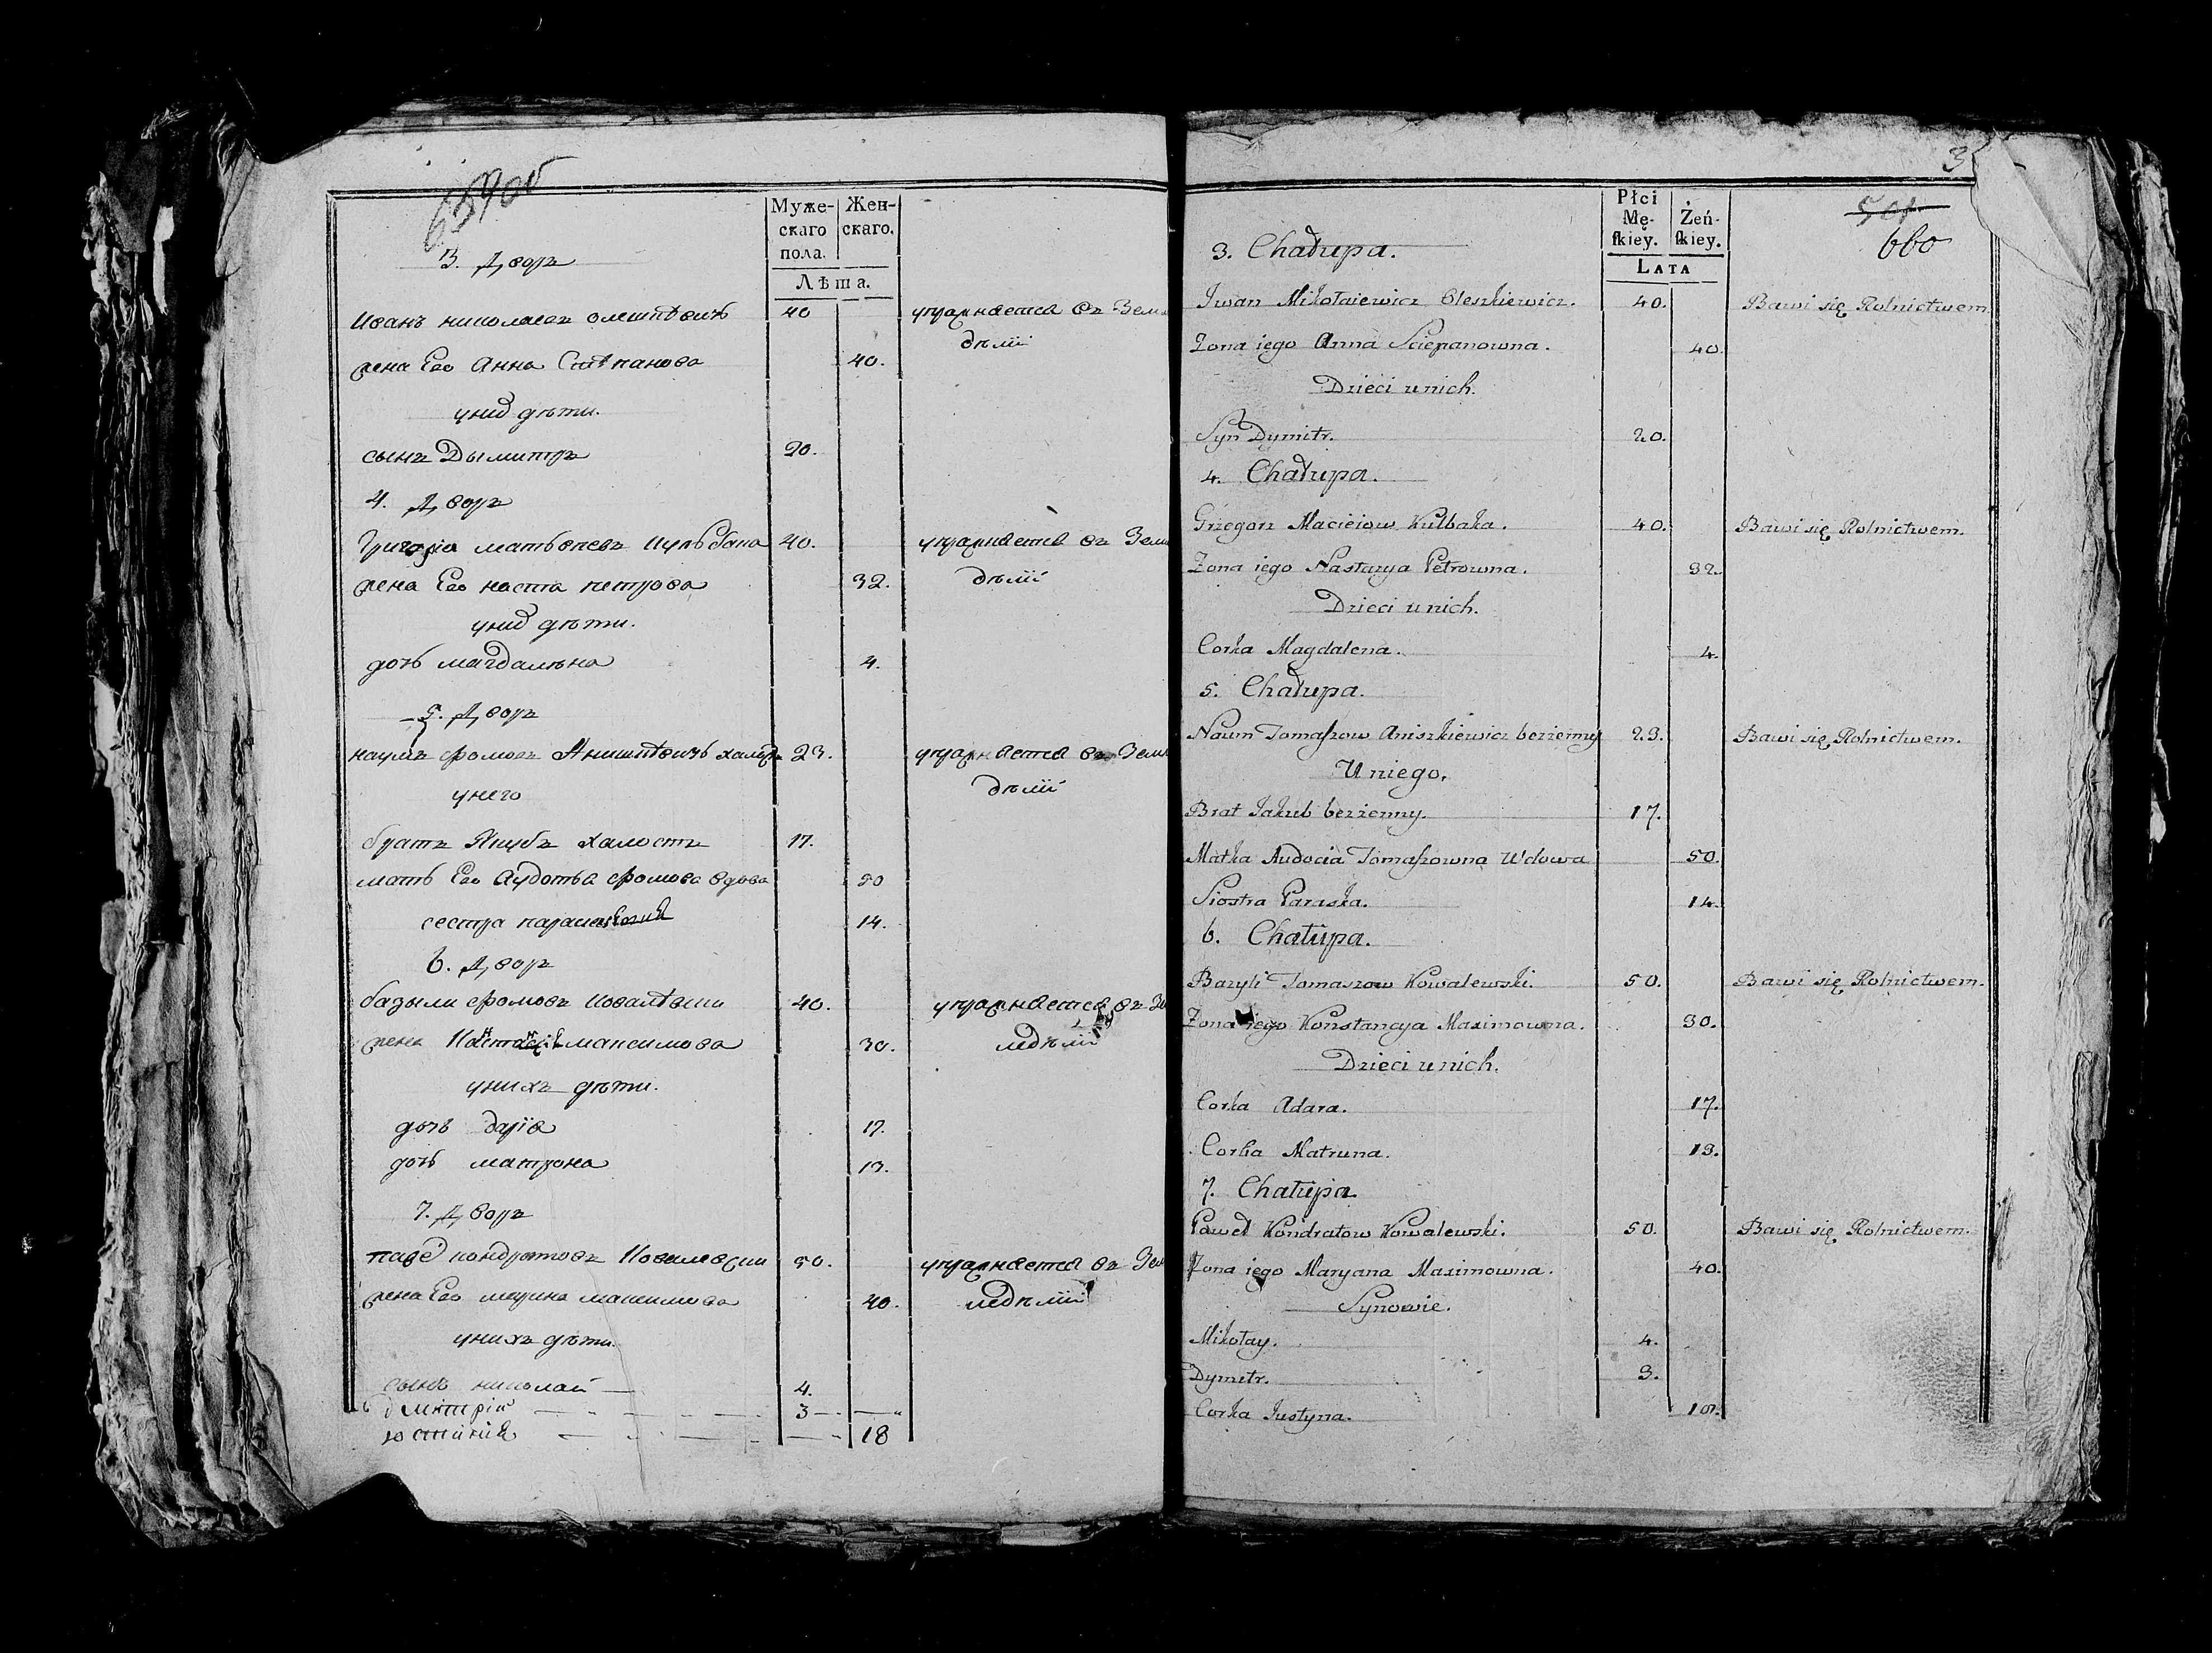 659 об
Муже-
скаго
пола.
Жен-
скаго.
Лѣта.
3. Дворъ
Иванъ николаевъ олешкѣвичъ 40 упражнается въ Земле
дѣлїї
жена Его Анна Стѣпанова 40.
уних дѣти.
сынъ Дымитръ 20.
4. Дворъ
Григоріа матвѣевъ Кульбака 40. упражнается въ Земле
жена Его наста петрова 32. дѣлїї
уних дѣти.
дочь магдалѣна 4.
5. Дворъ
наумъ фомовъ Анишкѣвичь халостъ 23. упражнается въ Земле
унего дѣлїї
братъ Якубъ халостъ 17.
мать Его Аудотьа фомова вдова 50
сестра 14.
6. Дворъ
базыли фомовъ Ковалѣвски 40. упражнается въ Зе
жена максимова 30. мледѣлїї
унихъ дѣти.
дочь даріа 17.
дочь матрона 13.
7. Дворъ
паве кондратовъ Ковалевски 50. упражнается въ Зе
жена Его марина максимова 40. мледѣлїї
унихъ дѣти.
сынъ николай 4.
дмитрій 3
юстинія 18
3
Płci
Mę-
ſkiey.
Żeń-
ſkiey.
LATA
501
660
3. Chałupa.
Iwan Mikołaiewicz Oleszkiewicz. 40. Bawi się Rolnictwem
Zona iego Anna Sciepanowna. 40.
Dzieci u nich.
Syn Dymitr. 20.
4. Chałupa.
Grzegorz Macieiow Kulbaka. 40. Bawi się Rolnictwem.
Zona iego Nastazya Petrowna. 32.
Dzieci u nich.
Corka Magdalena. 4.
5. Chałupa.
Naum Tomaſzow Aniszkiewicz bezżenny 23. Bawi się Rolnictwem.
U niego.
Brat Jakub bezżenny. 17.
Matka Audocia Tomaſzowna Wdowa 50.
Siostra Paraska. 14.
6. Chałupa.
Bazyli Tomaszow Kowalewski. 50. Bawi się Rolnictwem.
Zona iego Konstancya Maximowna. 30.
Dzieci u nich.
Corka Adara. 17.
Corka Matruna. 13.
7. Chałupa.
Paweł Kondratow Kowalewski. 50. Bawi się Rolnictwem.
Zona iego Maryana Maximowna. 40.
Synowie.
Mikołay. 4.
Dymitr. 3.
Corka Justyna. 18.